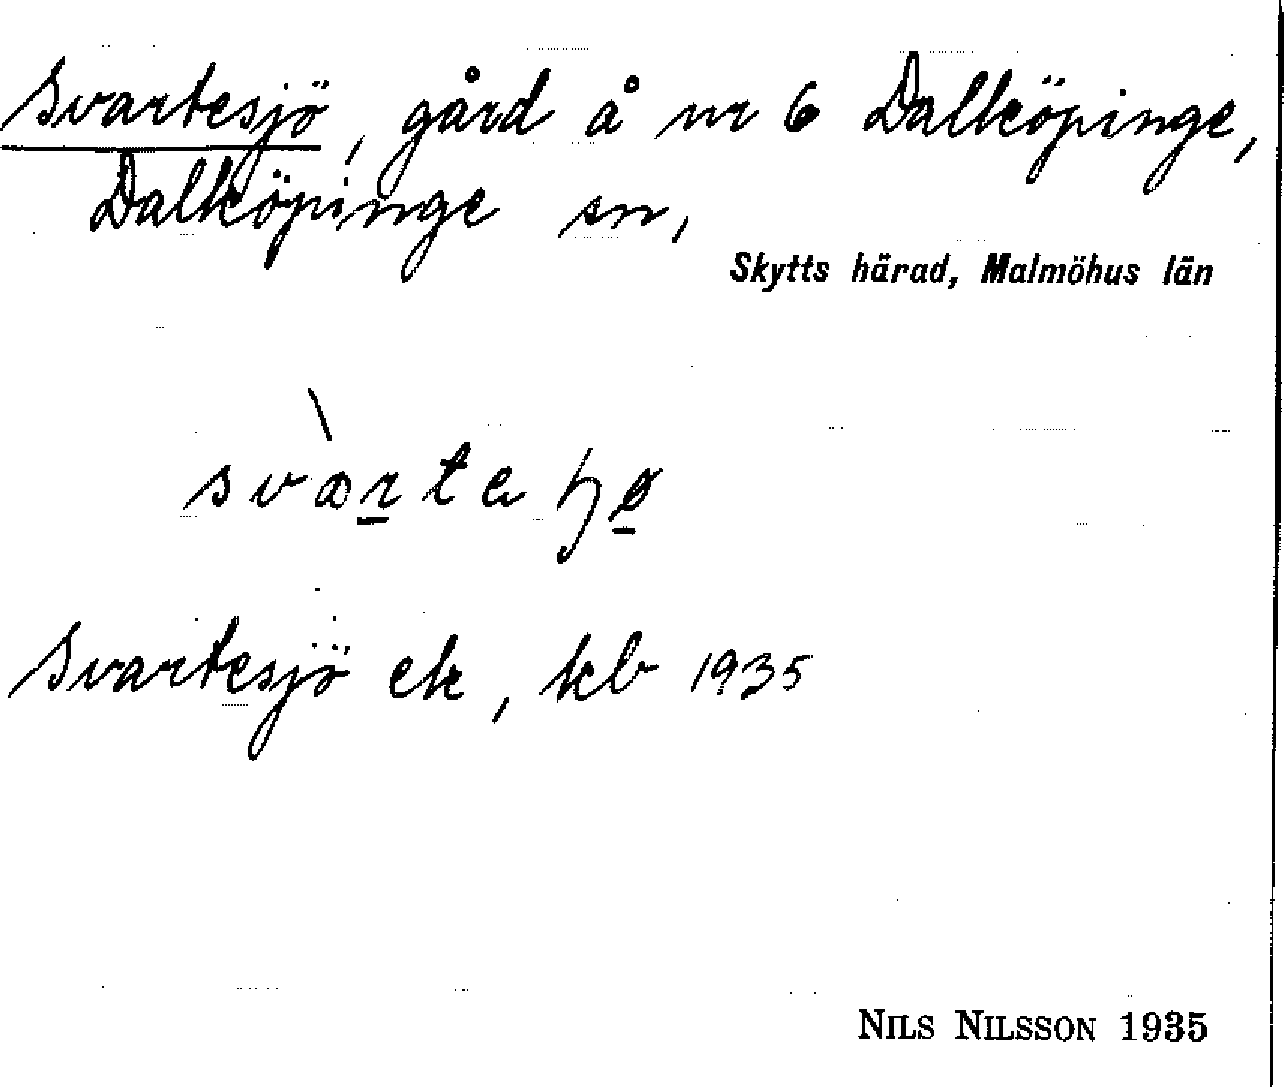 Svartesjö, gård å nr 6 Dalköpinge,
Dalköpinge sn,
Skytts härad, Malmöhus län
Svartesjö ek, kb 1935
NILS NILSSON 1935